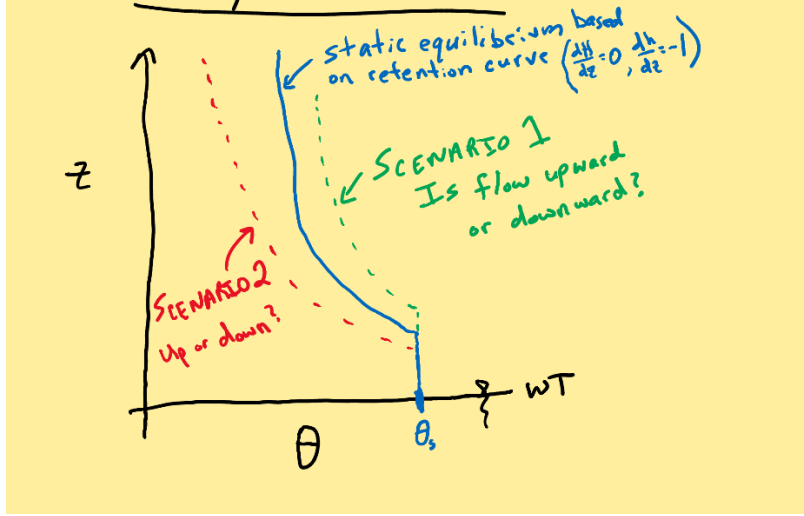 static equilibrium based
on retention curve (dH/dz = 0, dh/dz = -1)
z
SCENARIO 1
Is flow upward
or downward?
SCENARIO 2
Up or down?
WT
θ
θs